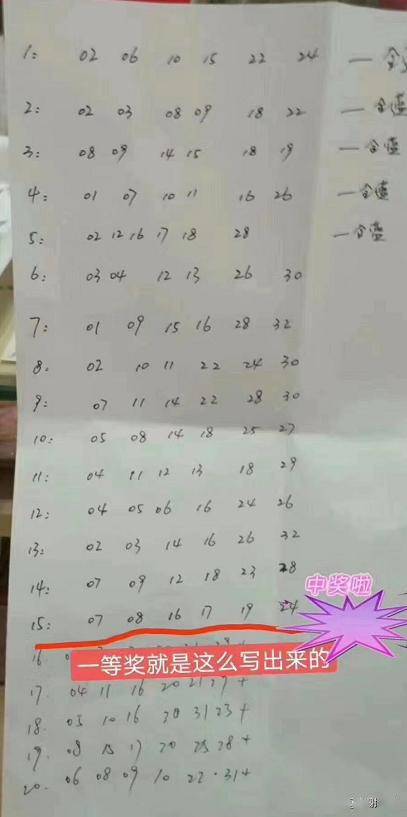 1: 02 06 10 15 22 24 — 全
2: 02 03 08 09 18 22 — 全
3: 08 09 14 15 18 19 — 全
4: 01 07 10 11 16 26 — 全
5: 02 12 16 17 18 28 — 全
6: 03 04 12 13 26 30
7: 01 09 15 16 28 32
8: 02 10 11 22 24 30
9: 07 11 14 22 28 30
10: 05 08 14 18 25 27
11: 04 11 12 13 18 29
12: 04 05 06 16 24 26
13: 02 03 14 16 26 32
14: 07 09 12 18 23 28
中奖啦
15: 07 08 16 17 19 24
16
一等奖就是这么写出来的
17. 04 11 16 20 21 29 +
18. 05 10 16 20 31 23 +
19. 08 15 17 20 25 28 +
20. 06 08 09 10 22 . 31 +